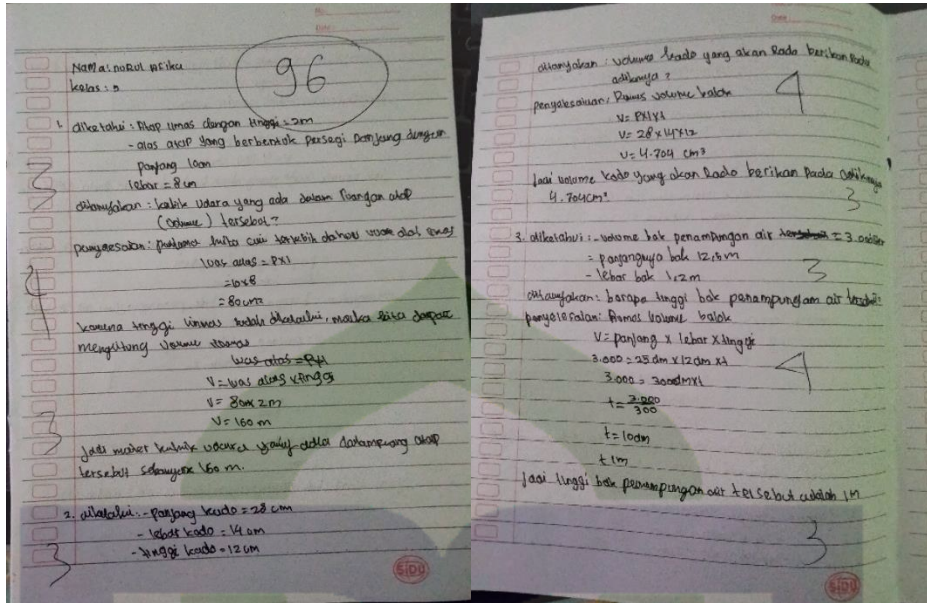 Date :
96
Nama : nurul afika
kelas : 9
1. diketahui : Atap limas dengan tinggi = 2m
- alas atap yang berbentuk persegi panjang dengan
panjang 10cm
lebar = 8 cm
3
ditanyakan : kubik udara yang ada dalam ruangan atap
(volume) tersebut ?
penyelesaian : pertama kita cari terlebih dahulu luas alas limas
luas alas = PXl
= 10x8
= 80cm2
4
karena tinggi limas sudah diketahui, maka kita dapat
menghitung volume
luas alas = PXl
V = luas alas x tinggi
V = 80 x 2 m
V = 160 m
3
Jadi meter kubik udara yang ada dalam ruang atap
tersebut sebanyak 160 m.
2. diketahui : - panjang kado = 28 cm
- lebar kado = 14 cm
- tinggi kado = 12 cm
3
SIDU
Date :
ditanyakan : volume kado yang akan Rado berikan pada
adiknya ?
4
penyelesaian : Rumus volume balok
V = PXlXt
V = 28 x 14 x 12
V = 4.704 cm³
Jadi volume kado yang akan Rado berikan pada adiknya
4.704cm³
3
3. diketahui : - volume bak penampungan air = 3.000 liter
= panjangnya bak 12,5 m
- lebar bak 1,2 m
3
ditanyakan : berapa tinggi bak penampungan air
penyelesaian : Rumus volume balok
V = panjang x lebar x tinggi
3.000 = 25 dm x 12 dm x t
3.000 = 300dm x t
4
t = 3.000
300
t = 10dm
t 1m
Jadi tinggi bak penampungan air tersebut adalah 1m
3
SIDU